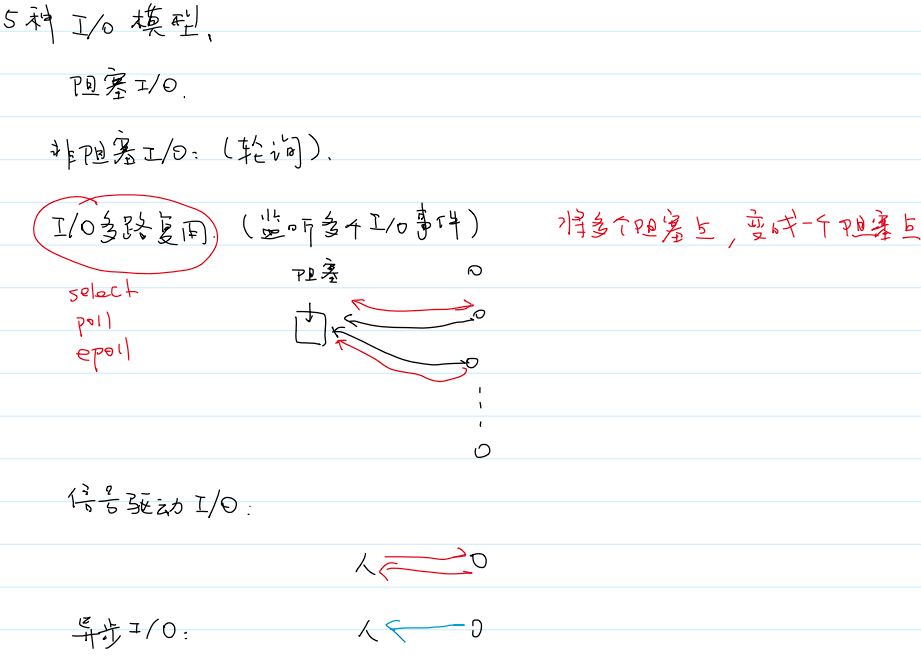 5种 I/O 模型.
阻塞 I/O.
非阻塞 I/O: (轮询).
I/O多路复用 (监听多个I/O事件) 将多个阻塞点, 变成一个阻塞点
阻塞
select
poll
epoll
信号驱动 I/O:
人
异步 I/O:
人